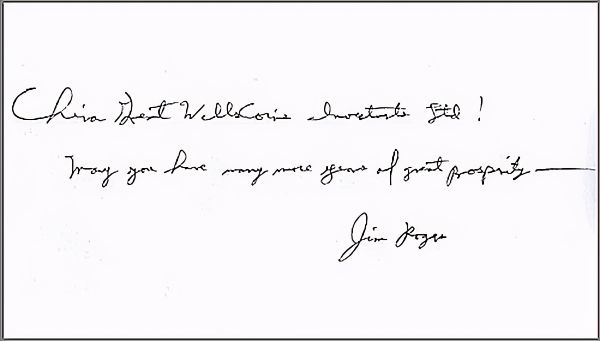 China Best Wellcoin Investments Ltd!
May you have many more years of great prosperity —
Jim Rogers